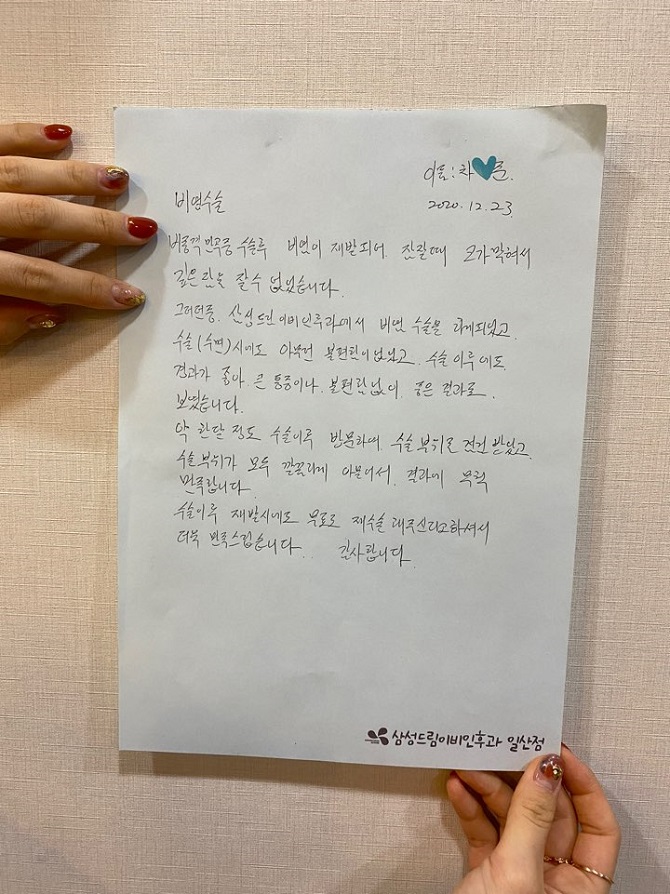 이름: 차💙준.
2020. 12. 23
비염수술
비중격 만곡증 수술후 비염이 재발되어. 잠잘때 코가막혀서
깊은 잠을 잘수 없었습니다.
그러던중. 삼성드림이비인후과에서 비염 수술을 하게되었고.
수술(수면)시에도 아무런 불편함이없었고. 수술이후에도.
경과가 좋아 큰 통증이나. 불편함없이. 좋은 결과를.
보였습니다.
약 한달 정도 수술이후 방문하여. 수술부위를 점검 받았고.
수술부위가 모두 깔끔하게 아물어서. 결과에 무척
만족합니다.
수술이후 재발시에도 무료로 재수술 해주신다고하셔서
더욱 만족스럽습니다. 감사합니다.
삼성드림이비인후과 일산점